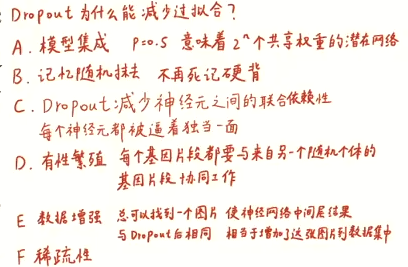 Dropout 为什么能减少过拟合？
A. 模型集成 P=0.5 意味着 2ⁿ个共享权重的潜在网络
B. 记忆随机抹去 不再死记硬背
C. Dropout减少神经元之间的联合依赖性
每个神经元都被逼着独当一面
D. 有性繁殖 每个基因片段都要与来自另一个随机个体的
基因片段协同工作
E 数据增强 总可以找到一个图片 使神经网络中间层结果
与Dropout后相同 相当于增加了这张图片到数据集中
F 稀疏性